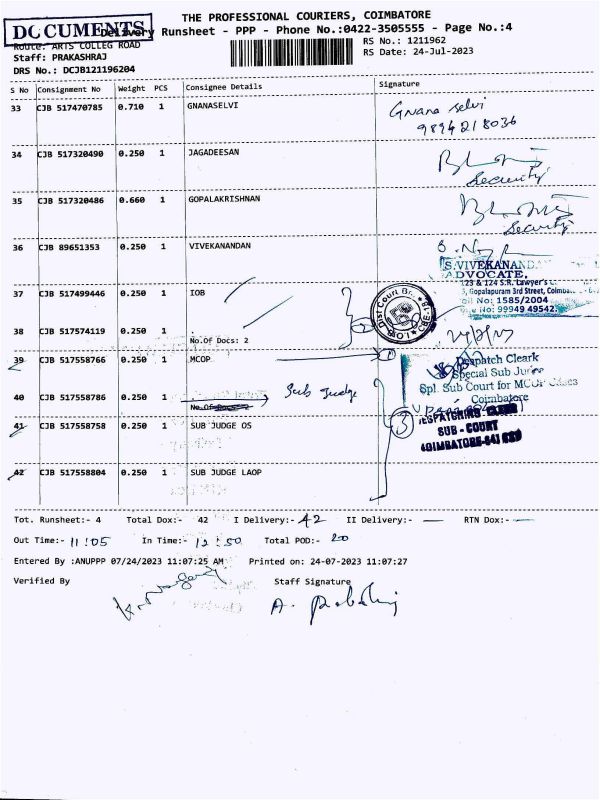 THE PROFESSIONAL COURIERS, COIMBATORE
DOCUMENTS
Delivery Runsheet - PPP - Phone No.:0422-3505555 - Page No.:4
Route: ARTS COLLEG ROAD
RS No.: 1211962
Staff: PRAKASHRAJ
RS Date: 24-Jul-2023
DRS No.: DCJB121196204
S No Consignment No Weight PCS Consignee Details Signature
33 CJB 517470785 0.710 1 GNANASELVI Gnana selvi
9894218036
34 CJB 517320490 0.250 1 JAGADEESAN
Security
35 CJB 517320486 0.660 1 GOPALAKRISHNAN
Security
36 CJB 89651353 0.250 1 VIVEKANANDAN
S.VIVEKANAND
ADVOCATE,
123 & 124 S.R. Lawyer's
Gopalapuram 3rd Street, Coimba
No: 1585/2004
No: 99949 49542
37 CJB 517499446 0.250 1 IOB
38 CJB 517574119 0.250 1
No.Of Docs: 2
39 CJB 517558766 0.250 1 MCOP
Despatch Cleark
Special Sub Judge
Spl. Sub Court for MCOP Cases
Coimbatore
40 CJB 517558786 0.250 1 Sub Judge
3
DESPATCHING CLERK
SUB - COURT
COIMBATORE-641
41 CJB 517558758 0.250 1 SUB JUDGE OS
42 CJB 517558804 0.250 1 SUB JUDGE LAOP
Tot. Runsheet:- 4 Total Dox:- 42 I Delivery:- 42 II Delivery:- — RTN Dox:- —
Out Time:- 11:05 In Time:- 12:50 Total POD:- 20
Entered By :ANUPPP 07/24/2023 11:07:25 AM Printed on: 24-07-2023 11:07:27
Verified By Staff Signature